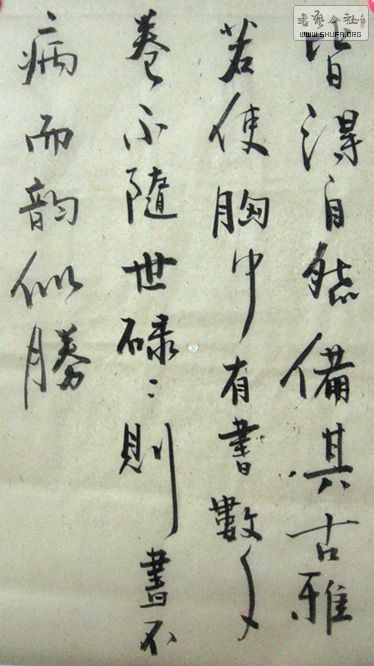 皆得自然備其古雅
若使胸中有書數千
卷不隨世碌々則書不
病而韵似勝
書藝公社
WWW.SHUFA.ORG